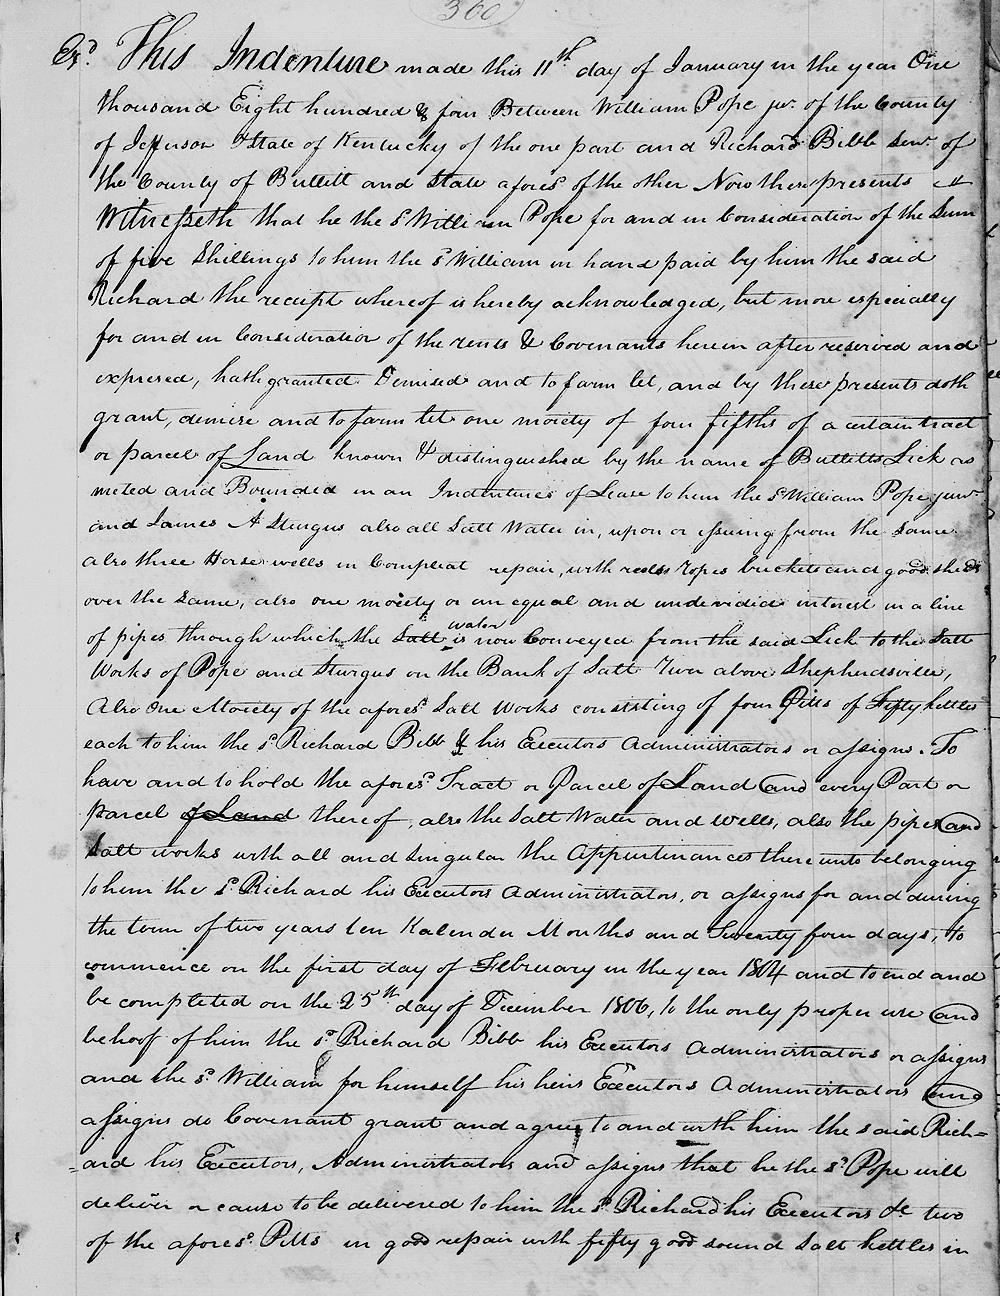 360
Exd. This Indenture made this 11th day of January in the year One
thousand Eight hundred & four Between William Pope jur. of the County
of Jefferson & State of Kentucky of the one part and Richard Bibb Senr. of
the County of Bullitt and State afores.d of the other Now these presents
Witnesseth that he the s.d William Pope for and in Consideration of the Sum
of five Shillings to him the s.d William in hand paid by him the said
Richard the receipt whereof is hereby acknowledged, but more especially
for and in Consideration of the rents & Covenants herein after reserved and
expressed, hath granted Demised and to farm let, and by these presents doth
grant, demise and to farm let one moiety of four fifths of a certain tract
or parcel of Land known & distinguished by the name of Bullitts Lick as
meted and Bounded in an Indentures of Lease to him the s.d William Pope junr
and James A Sturgus also all Salt Water in, upon or issuing from the same
also three Horse wells in Compleat repair, with ropes buckets and good sheds
over the Same, also one moiety or an equal and undevided interest in a line
of pipes through which the Salt water is now Conveyed from the said Lick to the Salt
Works of Pope and Sturgus on the Bank of Salt River above Shepherdsville,
Also One Moiety of the afores.d Salt Works consisting of four Pitts of Fifty kettles
each to him the s.d Richard Bibb & his Executors Administrators or assigns. To
have and to hold the afores.d Tract or Parcel of Land and every Part or
parcel of Land thereof, also the Salt Water and Wells, also the pipes and
Salt works with all and Singular the Appurtinances there unto belonging
to him the s.d Richard his Executors Administrators, or assigns for and during
the term of two years ten Kalender Months and Twenty four days, to
commence on the first day of February in the year 1804 and to end and
be completed on the 25th day of December 1806, to the only proper use and
behoof of him the s.d Richard Bibb his Executors Administrators or assigns
and the s.d William for himself his heirs Executors Administrators and
assigns do Covenant grant and agree to and with him the said Rich=
=ard his Executors, Administrators and assigns that he the s.d Pope will
deliver or cause to be delivered to him the s.d Richard his Executors &c two
of the afores.d Pitts in good repair with fifty good sound Salt kettles in